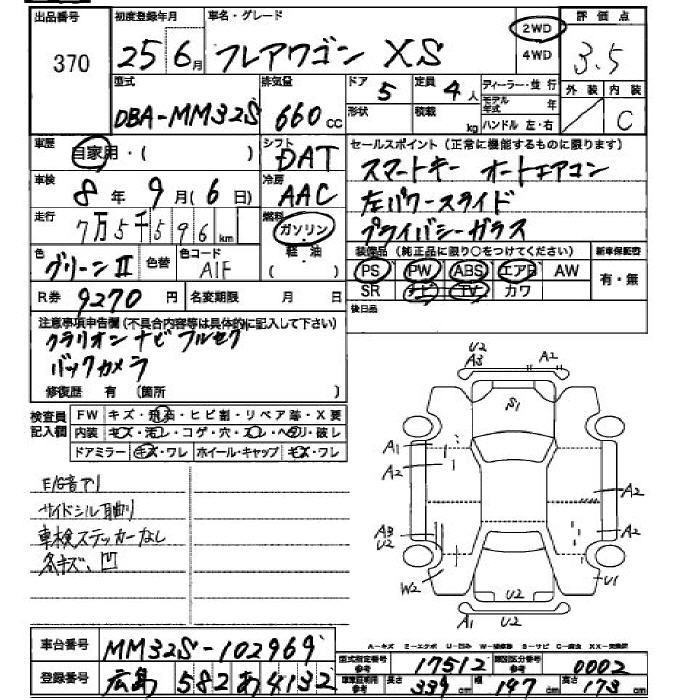 出品番号 370
初度登録年月 25 6月
車名・グレード フレアワゴン XS
2WD
4WD
評価点 3.5
外装 内装 C
型式 DBA-MM32S
排気量 660 cc
ドア 5
定員 4人
形状 積載 kg
ディーラー・並行
モデル年式 年
ハンドル 左・右
車歴 自家用・( )
シフト DAT
車検 8年 9月(6日)
冷房 AAC
走行 7万5千596km
燃料 ガソリン・軽油 ( )
色 グリーンⅡ 色替 色コード A1F
R券 9270円 名変期限 月 日
セールスポイント(正常に機能するものに限ります)
スマートキー オートエアコン
左パワースライド
プライバシーガラス
装備品(純正品に限り○をつけてください) 新車保証書
PS PW ABS エアB AW 有・無
SR ナビ TV カワ
後日品
注意事項申告欄(不具合内容等は具体的に記入して下さい)
クラリオンナビ フルセグ
バックカメラ
修復歴 有(箇所 )
検査員記入欄
FW キズ・飛石・ヒビ割・リペア跡・X要
内装 キズ・汚レ・コゲ・穴・スレ・ヘタリ・破レ
ドアミラー キズ・ワレ ホイール・キャップ キズ・ワレ
サイドシル曲り
車検ステッカーなし
各キズ、凹
U2
A3
A2
S1
A1
A2
A2
A2
A3
U2
W2
U1
U2
A1
U2
車台番号 MM32S-102969
登録番号 広島 582 あ 4132
型式指定番号 参考 17512
類別区分番号 参考 0002
長さ 339cm
幅 147cm
高さ 173cm